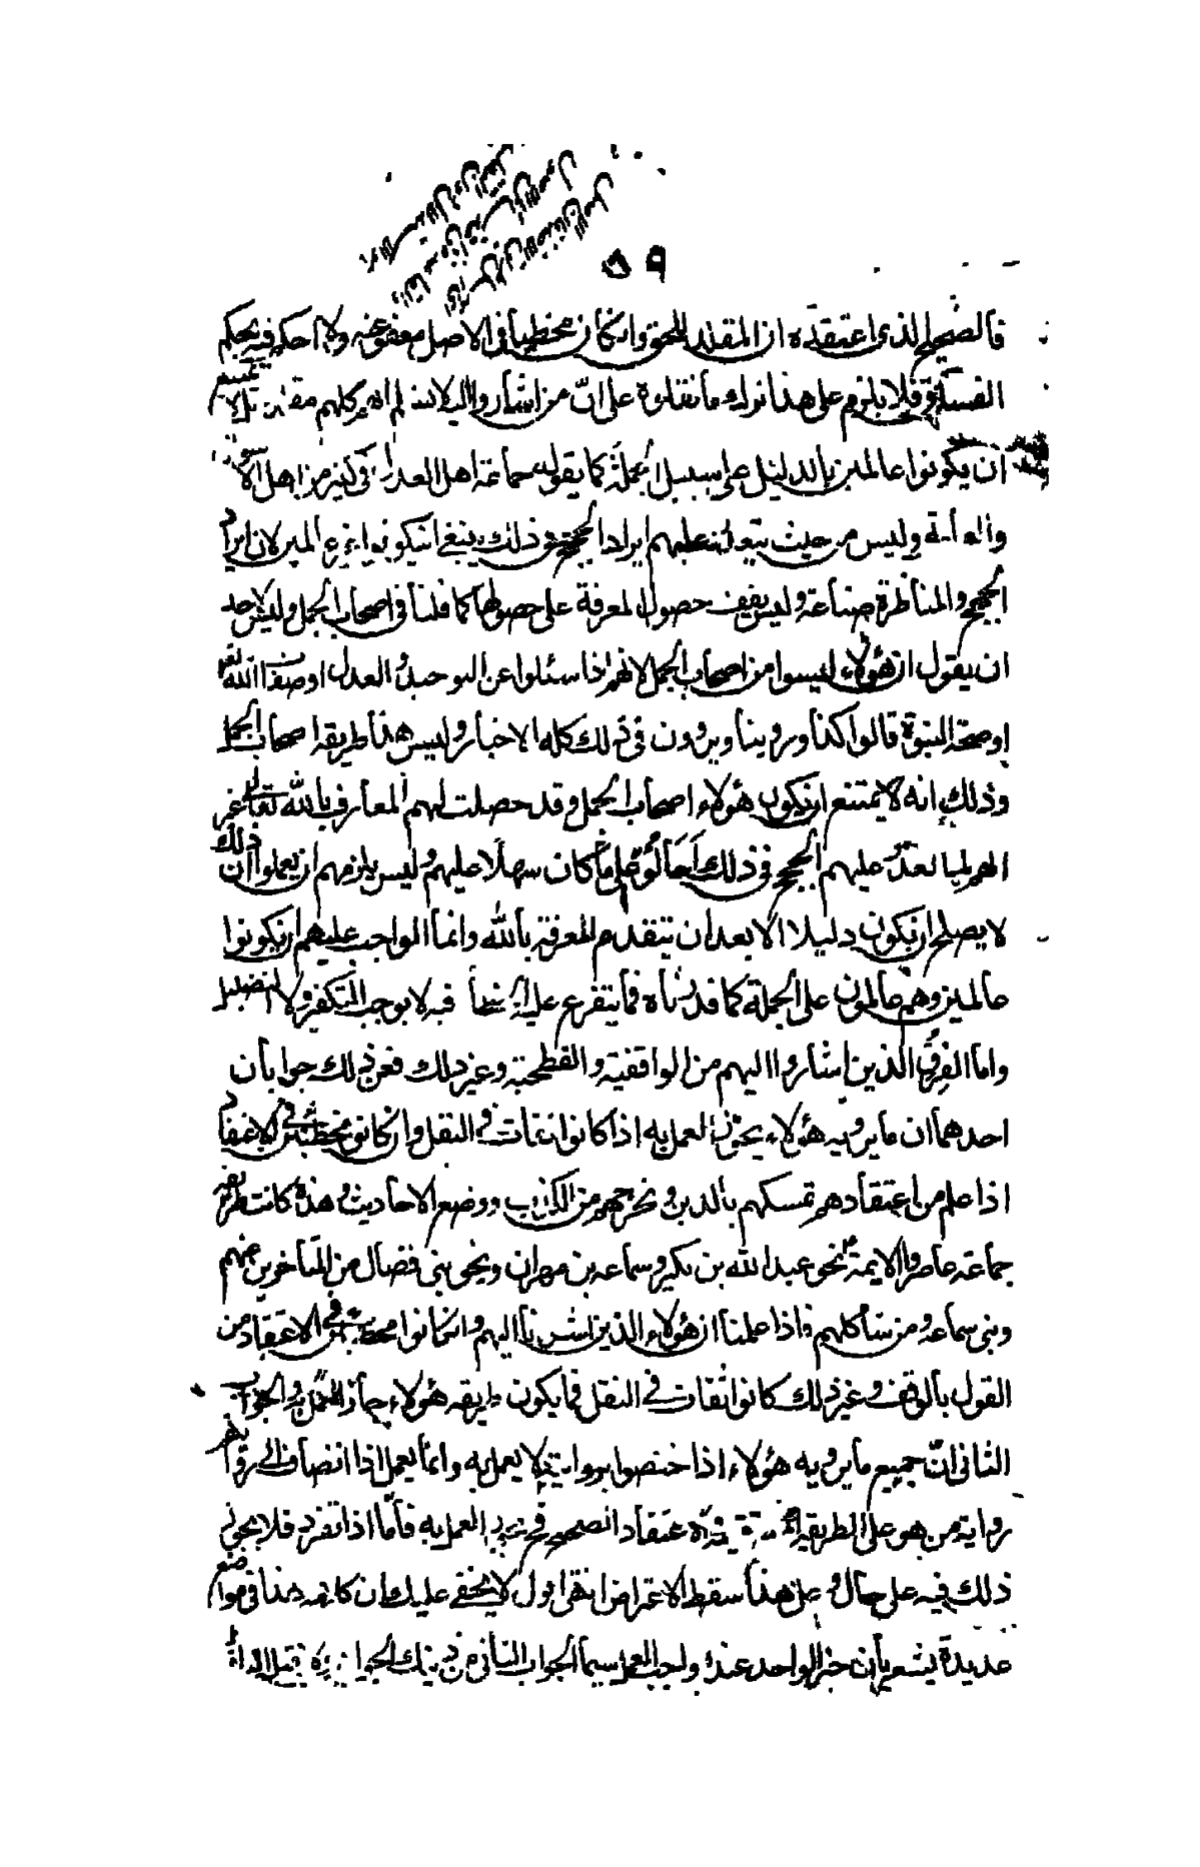 ٥٩
فالصحيح الذي اعتقده ان المقلد للحق وانكان مخطيا في الاصل معفو عنه ولا احكم فيه بحكم
الفسق فلا يلزم على هذا ترك ما نقلوه على انّ من اشاروا اليه لا نسلم انهم كلهم مقلدة بل لا يمتنع
ان يكونوا عالمين بالدليل على سبيل الجملة كما يقوله جماعة اهل العدل في كثير من اهل الاسواق
والعامة وليس من حيث يتعذر عليهم ايراد الحجج في ذلك ينبغي ان يكونوا غير عالمين لان ايراد
الحجج والمناظرة صناعة وليس يقف حصول المعرفة على حصولها كما قلنا في اصحاب الجمل وليس لاحد
ان يقول ان هؤلاء ليسوا من اصحاب الجمل لانهم اذا سئلوا عن التوحيد او العدل او صفات الله تعالى
او صحة النبوة قالوا كذا روينا ويروون في ذلك كله الاخبار وليس هذا طريقة اصحاب الجمل
وذلك انه لا يمتنع ان يكون هؤلاء اصحاب الجمل وقد حصلت لهم المعارف بالله تعالى غير
انهم لما تعذر عليهم الحجج في ذلك احالوا على ما كان سهلا عليهم وليس يلزمهم ان يعلموا ان ذلك
لا يصلح ان يكون دليلا الا بعد ان يتقدم المعرفة بالله وانما الواجب عليهم ان يكونوا
عالمين وهم عالمون على الجملة كما قدرناه فما يتفرع عليه الخطأ فيه لا يوجب التكفير ولا التضليل
واما الفرق الذين اشاروا اليهم من الواقفية والفطحية وغير ذلك فعن ذلك جوابان
احدهما ان ما يرويه هؤلاء يجوز العمل به اذا كانوا ثقات في النقل وان كانوا مخطئين في الاعتقاد
اذا علم من اعتقادهم تمسكهم بالدين وتحرجهم من الكذب ووضع الاحاديث وهذه كانت طريقة
جماعة عاصروا الائمة نحو عبد الله بن بكير وسماعة بن مهران ونحو بني فضال من المتأخرين عنهم
وبني سماعة ومن شاكلهم فاذا علمنا ان هؤلاء الذين اشرنا اليهم وان كانوا مخطئين في الاعتقاد من
القول بالوقف وغير ذلك كانوا ثقات في النقل فما يكون طريقه هؤلاء جاز العمل به والجواب
الثاني انّ جميع ما يرويه هؤلاء اذا اختصوا بروايته لا يعمل به وانما يعمل اذا انضاف الى روايتهم
رواية من هو على الطريقة المستقيمة والاعتقاد الصحيح فحينئذ يجوز العمل به فأمّا اذا تفرد فلا يجوز
ذلك فيه على حال وعلى هذا سقط الاعتراض انتهى اقول لا يخفى عليك ان كلامه هذا في مواضع
عديدة يشعر بأن خبر الواحد عنده واجب العمل سيما الجواب الثاني من ذينك الجوابين